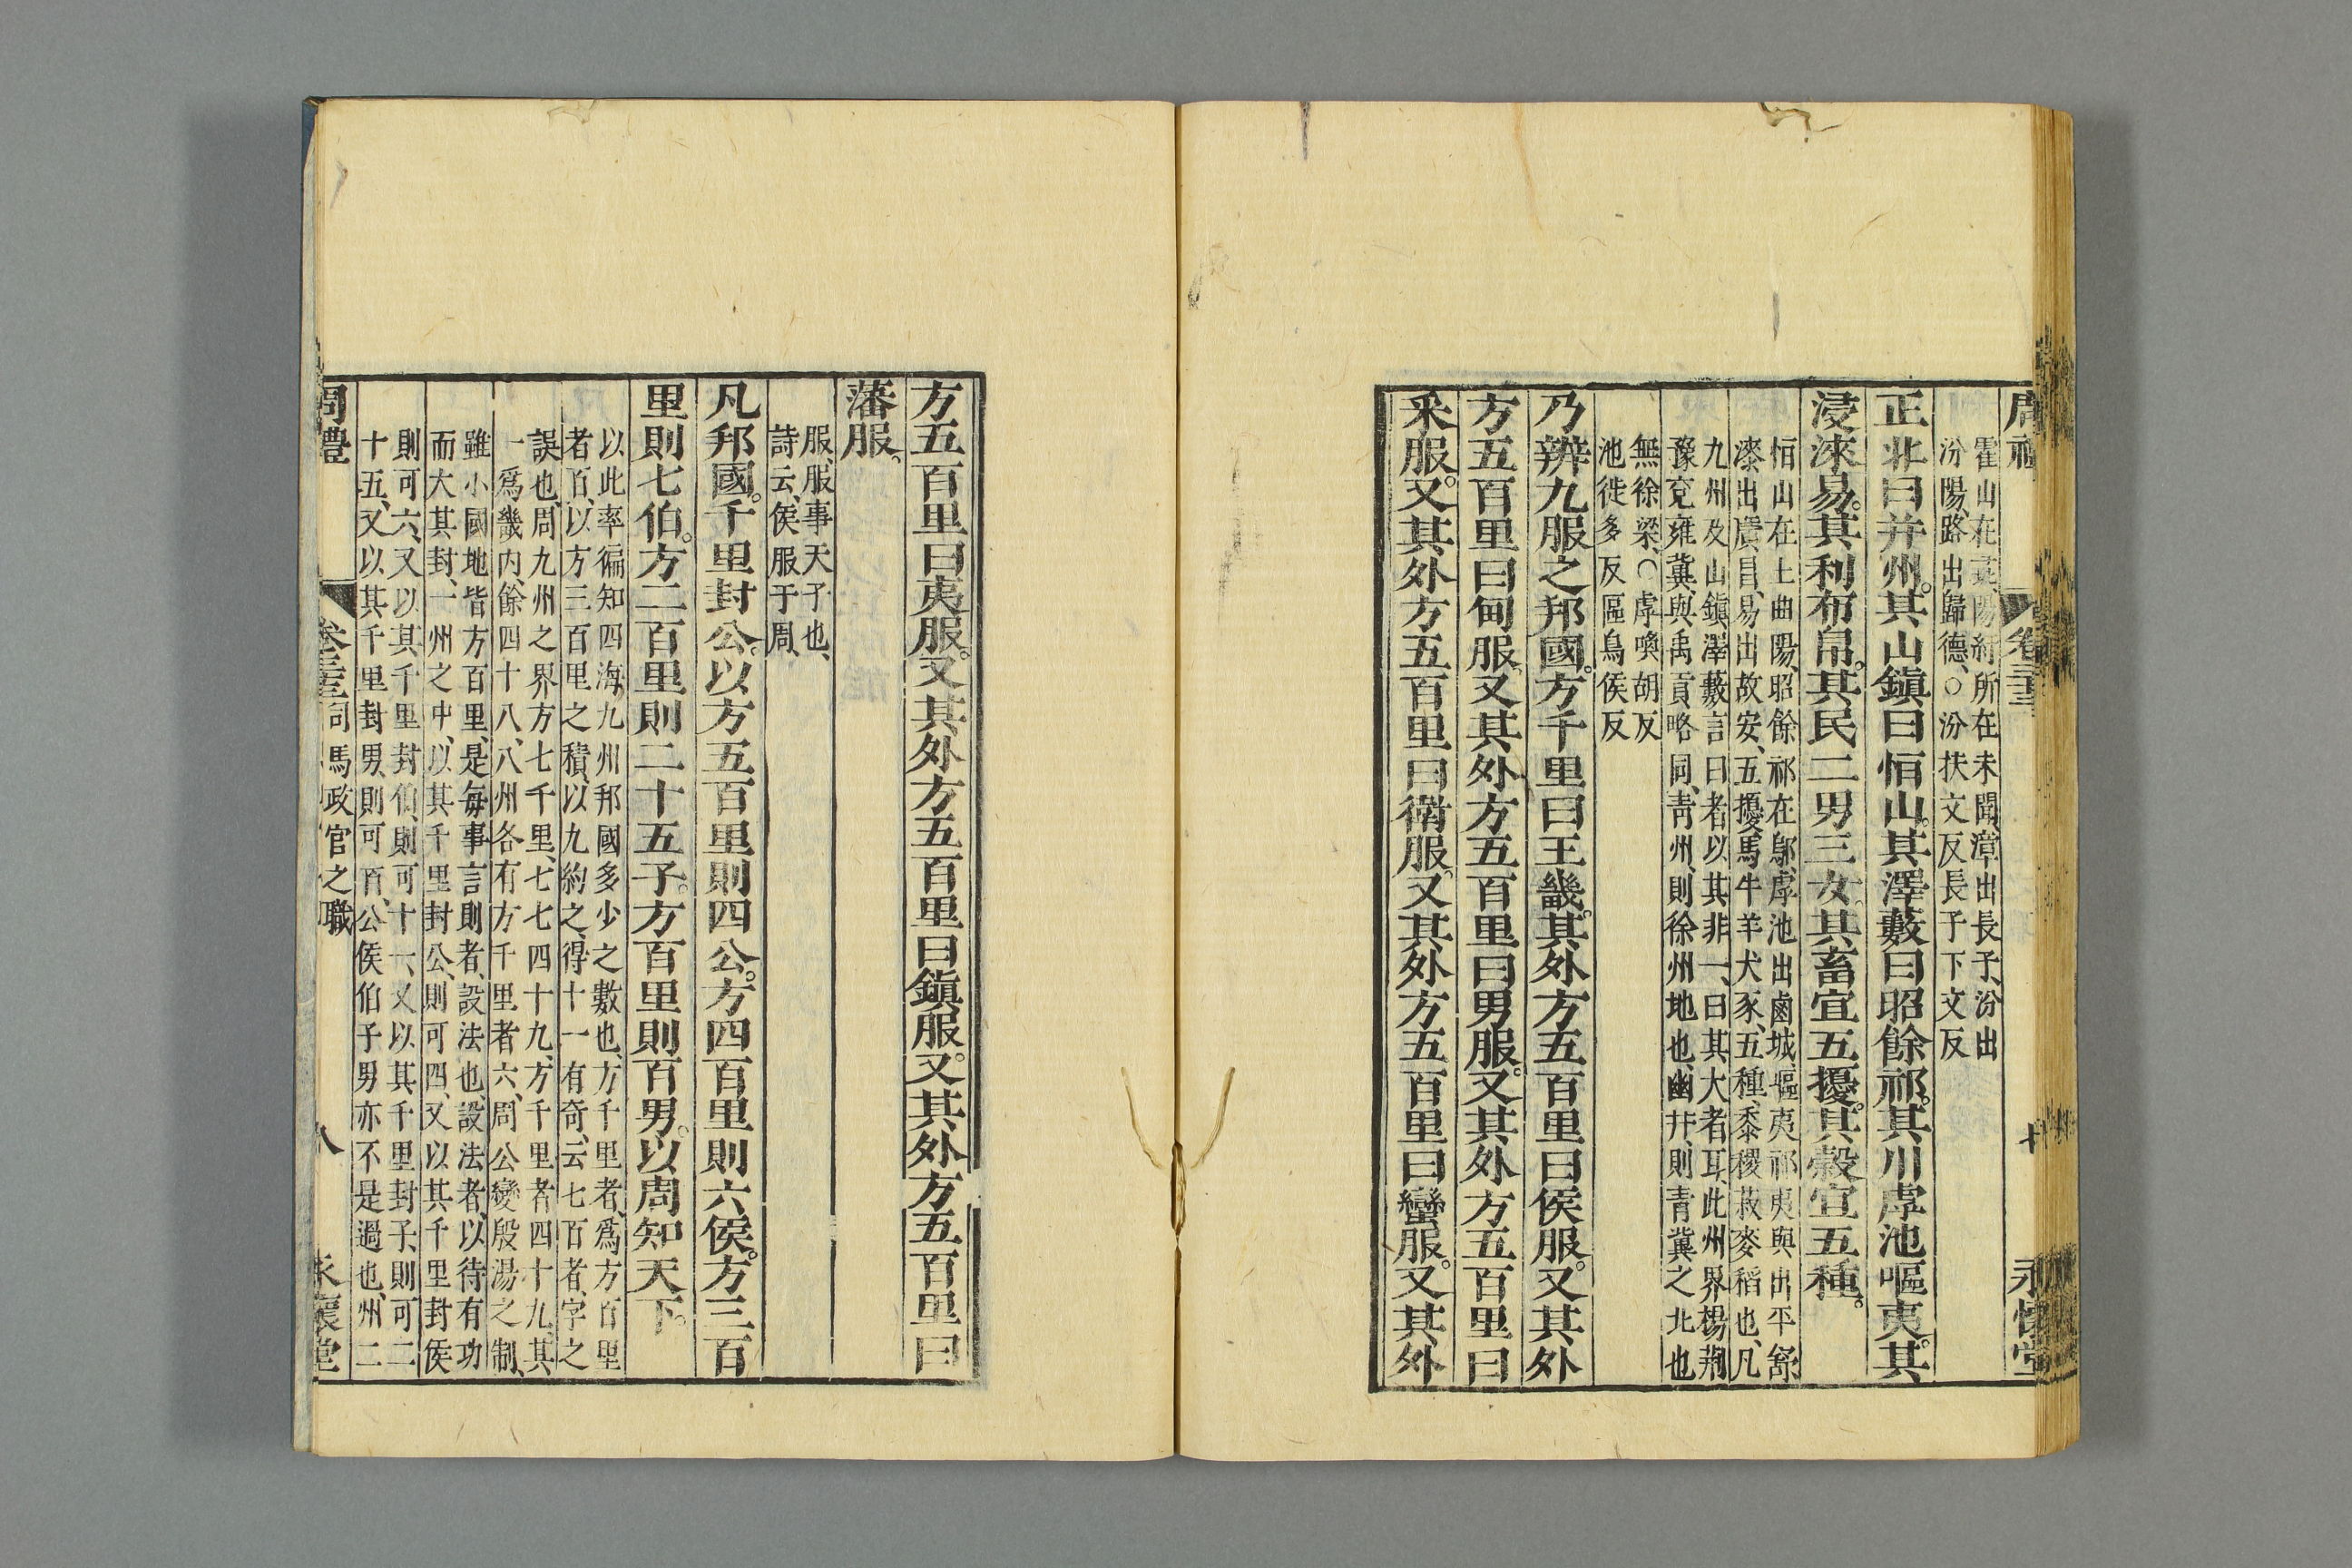 霍山在彘陽紆所在未聞漳出長子、汾出
汾陽、路出歸德、○汾扶文反長子下文反
正北曰并州。其山鎮曰恒山。其澤藪曰昭餘祁。其川虖池嘔夷。其
浸淶易。其利布帛。其民二男三女。其畜宜五擾。其穀宜五種。
恒山在上曲陽、昭餘祁在鄔、虖池出鹵城、嘔夷祁夷與出平舒
淶出廣昌、易出故安、五擾馬牛羊犬豕、五種、黍稷菽麥稻也、凡
九州及山鎮澤藪言曰者以其非一、曰其大者耳、此州界楊荊
豫兗雍冀、與禹貢略同、靑州、則徐州地也、幽并、則青冀之北也
無徐梁、○虖喚胡反
池徙多反區烏侯反
乃辨九服之邦國。方千里曰王畿。其外方五百里曰侯服。又其外
方五百里曰甸服。又其外方五百里曰男服。又其外方五百里曰
采服。又其外方五百里曰衛服。又其外方五百里曰蠻服。又其外
方五百里曰夷服。又其外方五百里曰鎮服。又其外方五百里曰
藩服。
服、服事天子也、
詩云、侯服于周、
凡邦國。千里封公。以方五百里則四公。方四百里則六侯。方三百
里則七伯。方二百里則二十五子。方百里則百男。以周知天下。
以此率徧知四海九州邦國多少之數也、方千里者、爲方百里
者百、以方三百里之積、以九約之、得十一有奇、云七百者、字之
誤也、周九州之界方七千里、七七四十九、方千里者四十九、其
一爲畿內、餘四十八、八州各有方千里者六、周公變殷湯之制、
雖小國地皆方百里、是每事言則者、設法也、設法者、以待有功
而大其封、一州之中、以其千里封公、則可四、又以其千里封侯
則可六、又以其千里封伯、則可十一、又以其千里封子、則可二
十五、又以其千里封男、則可百、公侯伯子男亦不是過也、州二
周禮 卷三十三司馬政官之職 八 永懷堂